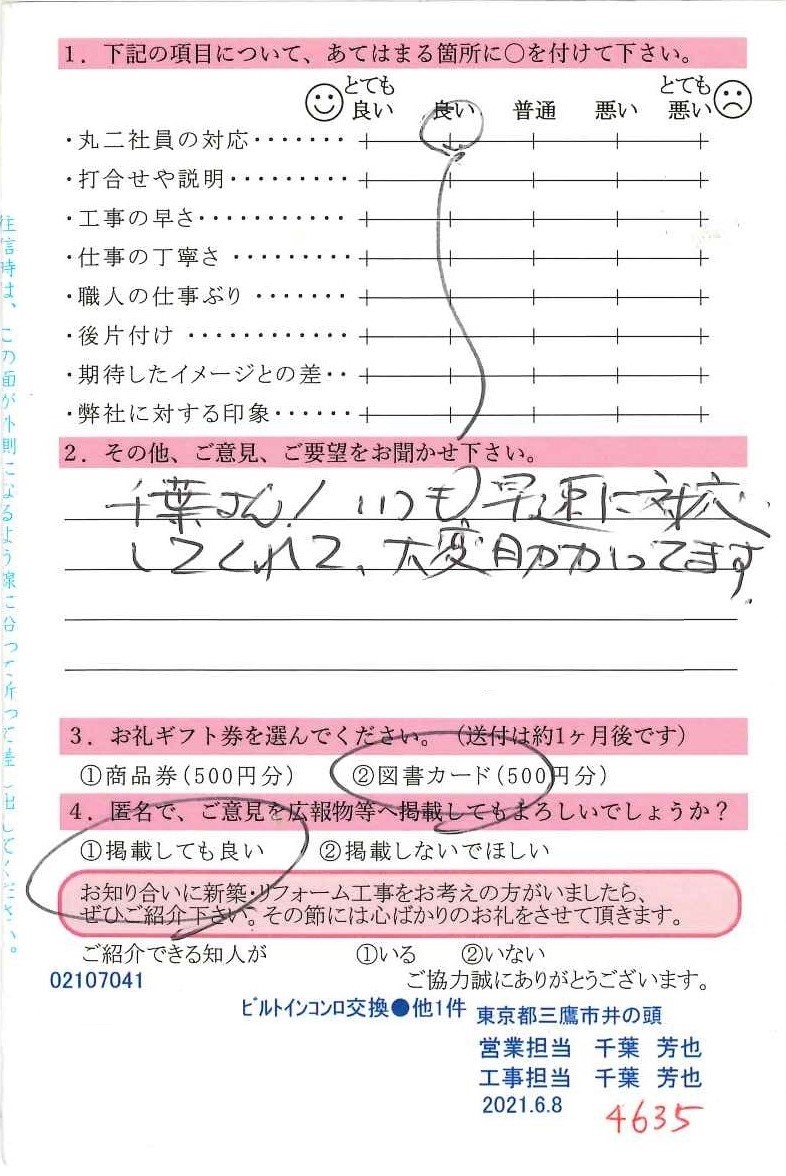 1．下記の項目について、あてはまる箇所に○を付けて下さい。
とても良い 良い 普通 悪い とても悪い
・丸二社員の対応・・・・・・・
・打合せや説明・・・・・・・・・
・工事の早さ・・・・・・・・・・・
・仕事の丁寧さ・・・・・・・・・
・職人の仕事ぶり・・・・・・・
・後片付け・・・・・・・・・・・・
・期待したイメージとの差・・
・弊社に対する印象・・・・・・
2．その他、ご意見、ご要望をお聞かせ下さい。
千葉さん！いつも早速に対応
してくれて、大変助かってます。
3．お礼ギフト券を選んでください。（送付は約1ヶ月後です）
①商品券（500円分） ②図書カード（500円分）
4．匿名で、ご意見を広報物等へ掲載してもよろしいでしょうか？
①掲載しても良い ②掲載しないでほしい
お知り合いに新築・リフォーム工事をお考えの方がいましたら、
ぜひご紹介下さい。その節には心ばかりのお礼をさせて頂きます。
ご紹介できる知人が ①いる ②いない
02107041 ご協力誠にありがとうございます。
ビルトインコンロ交換●他1件 東京都三鷹市井の頭
営業担当 千葉 芳也
工事担当 千葉 芳也
2021.6.8 4635
往信時は、この面が外側になるよう線に沿って折って差し出してください。